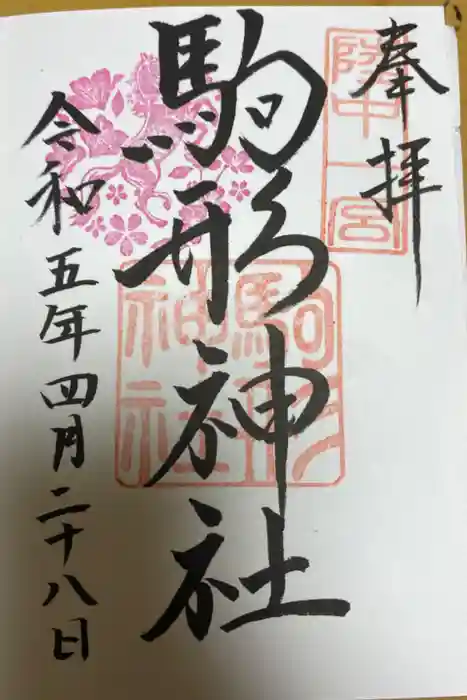 奉拝
陸中一宮
駒形神社
駒形神社
令和五年四月二十八日